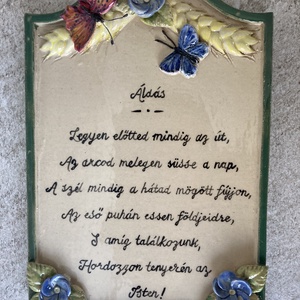 Áldás
Legyen előtted mindig az út,
Az arcod melegen süsse a nap,
A szél mindig a hátad mögött fújjon,
Az eső puhán essen földjeidre,
S amíg találkozunk,
Hordozzon tenyerén az
Isten!